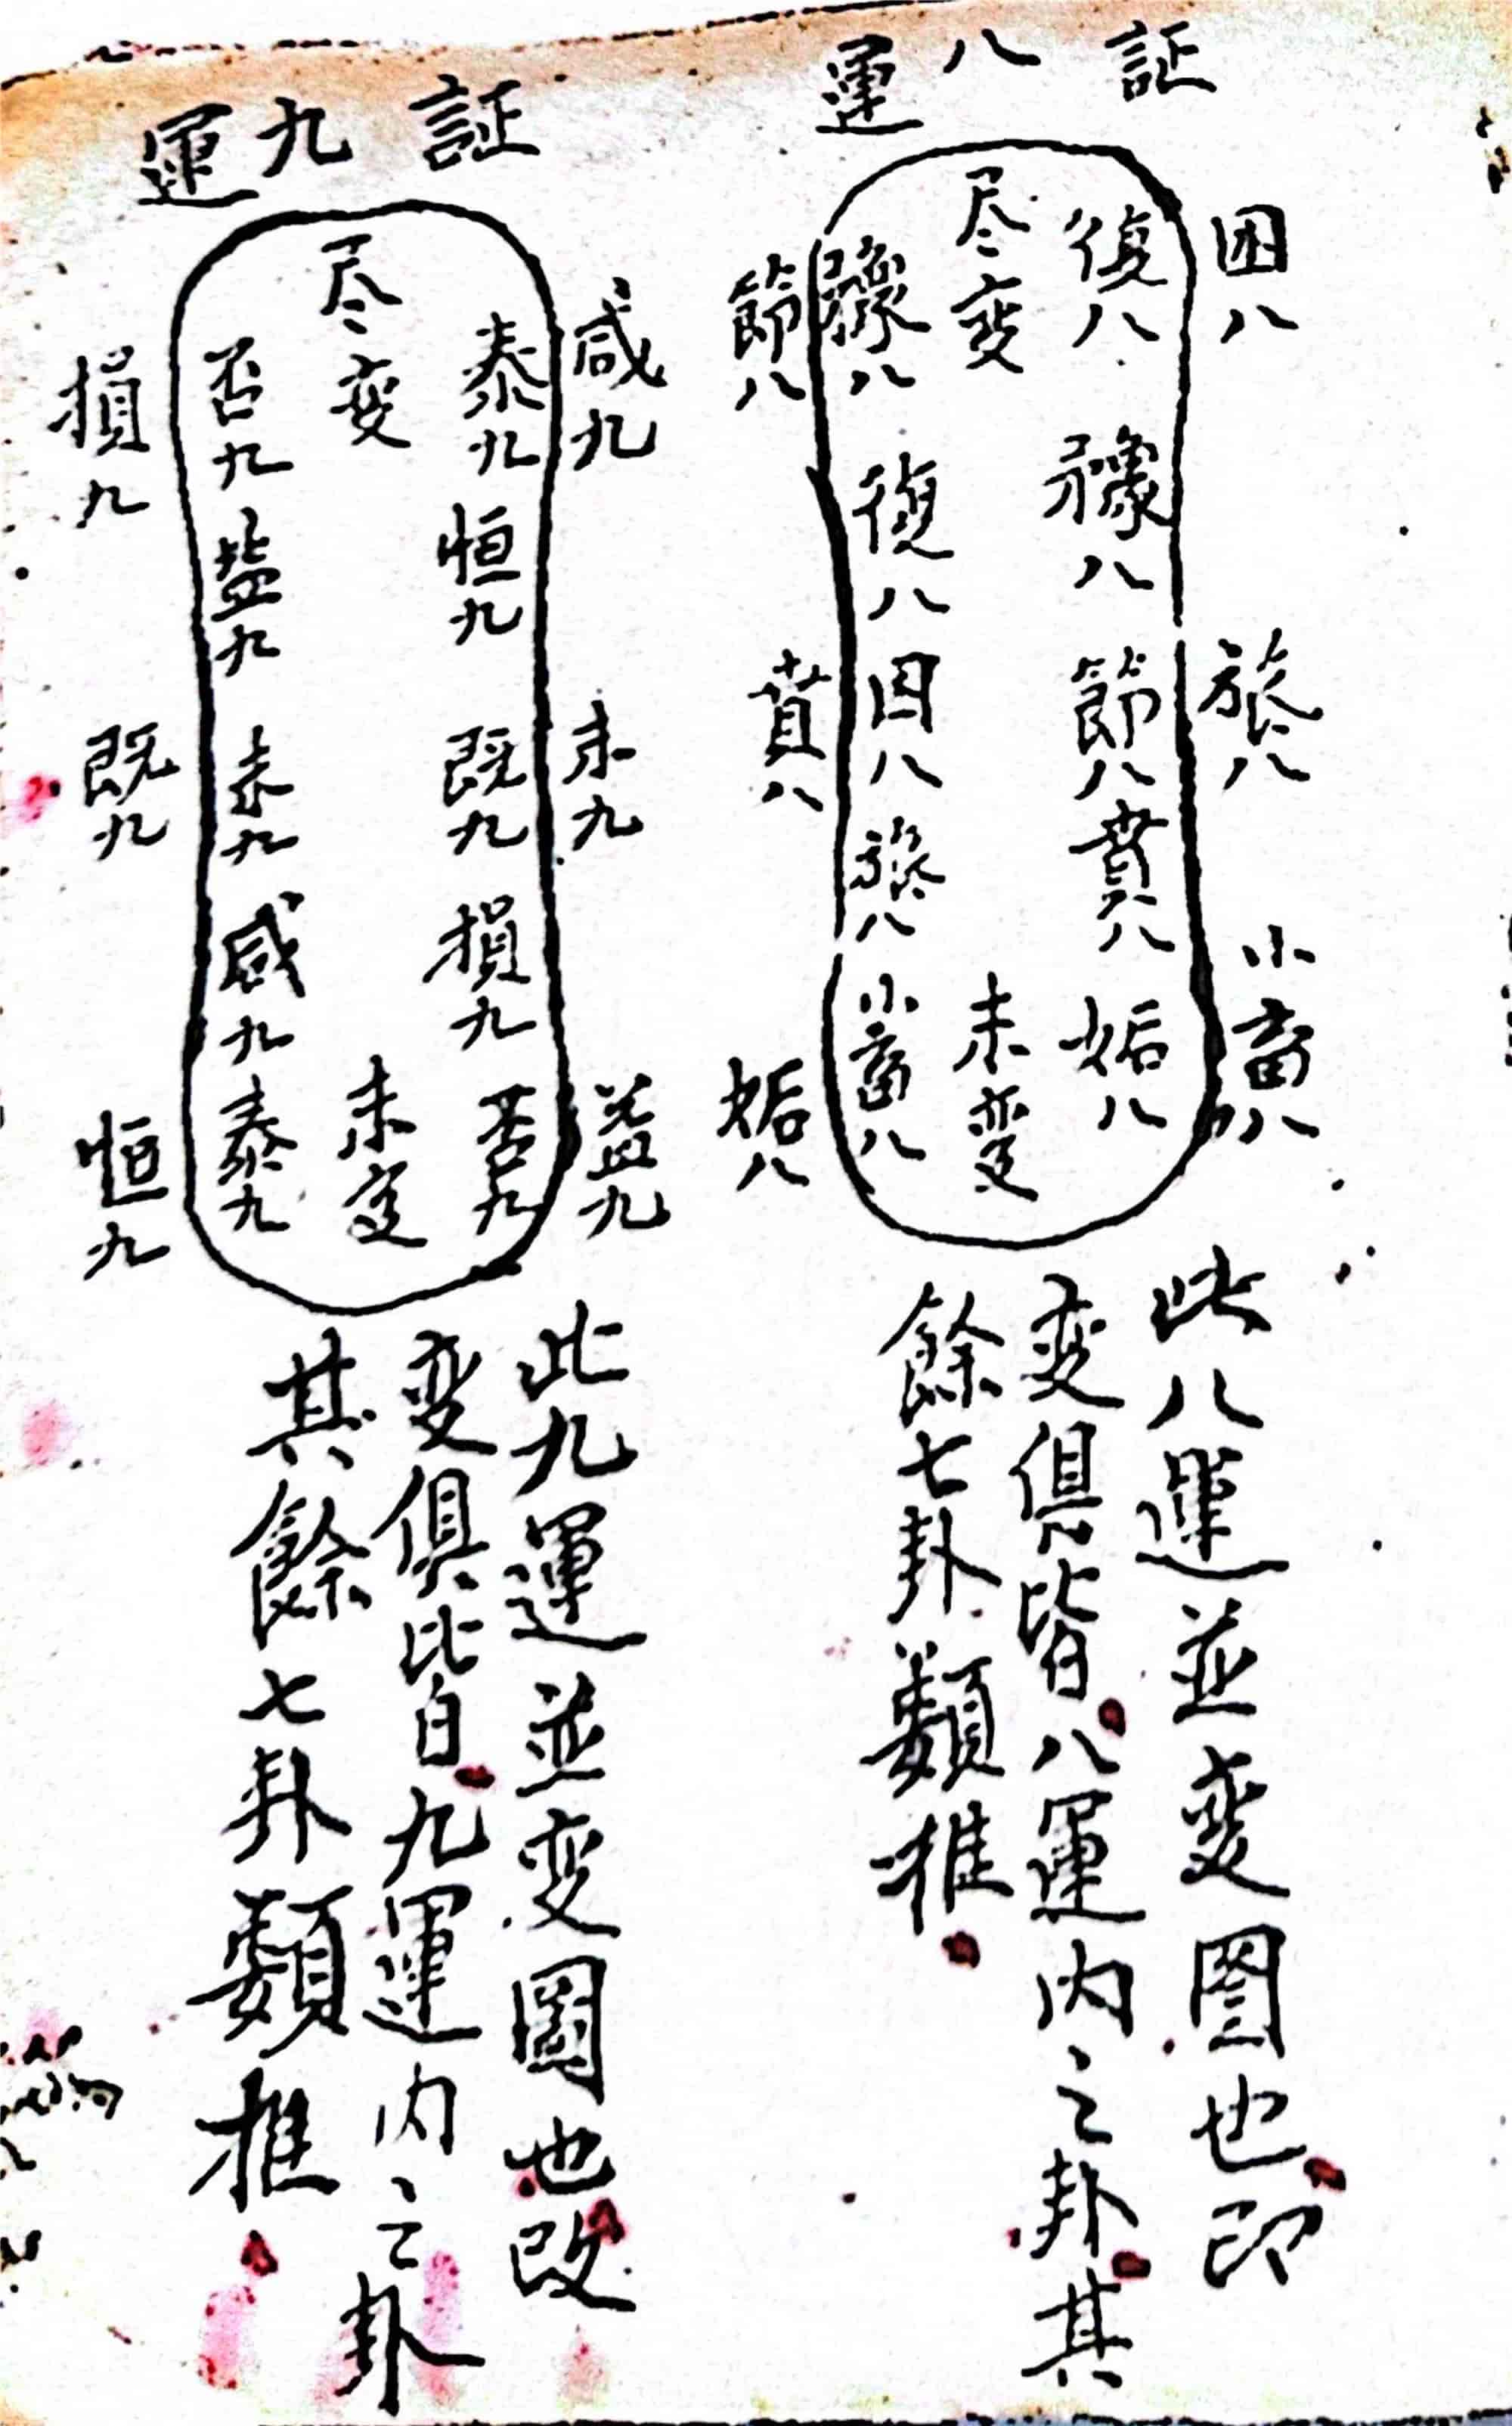 証八運
困八
旅八
小畜八
復八
豫八
節八
賁八
姤八
尽变
未变
豫八
復八
困八
旅八
小畜八
節八
賁八
姤八
此八運並变图也即
变俱皆八運内之卦其
餘七卦類推
証九運
咸九
未九
益九
泰九
恒九
既九
損九
否九
尽变
未变
否九
益九
未九
咸九
泰九
損九
既九
恒九
此九運並变圖也改
变俱皆九運内之卦
其餘七卦類推